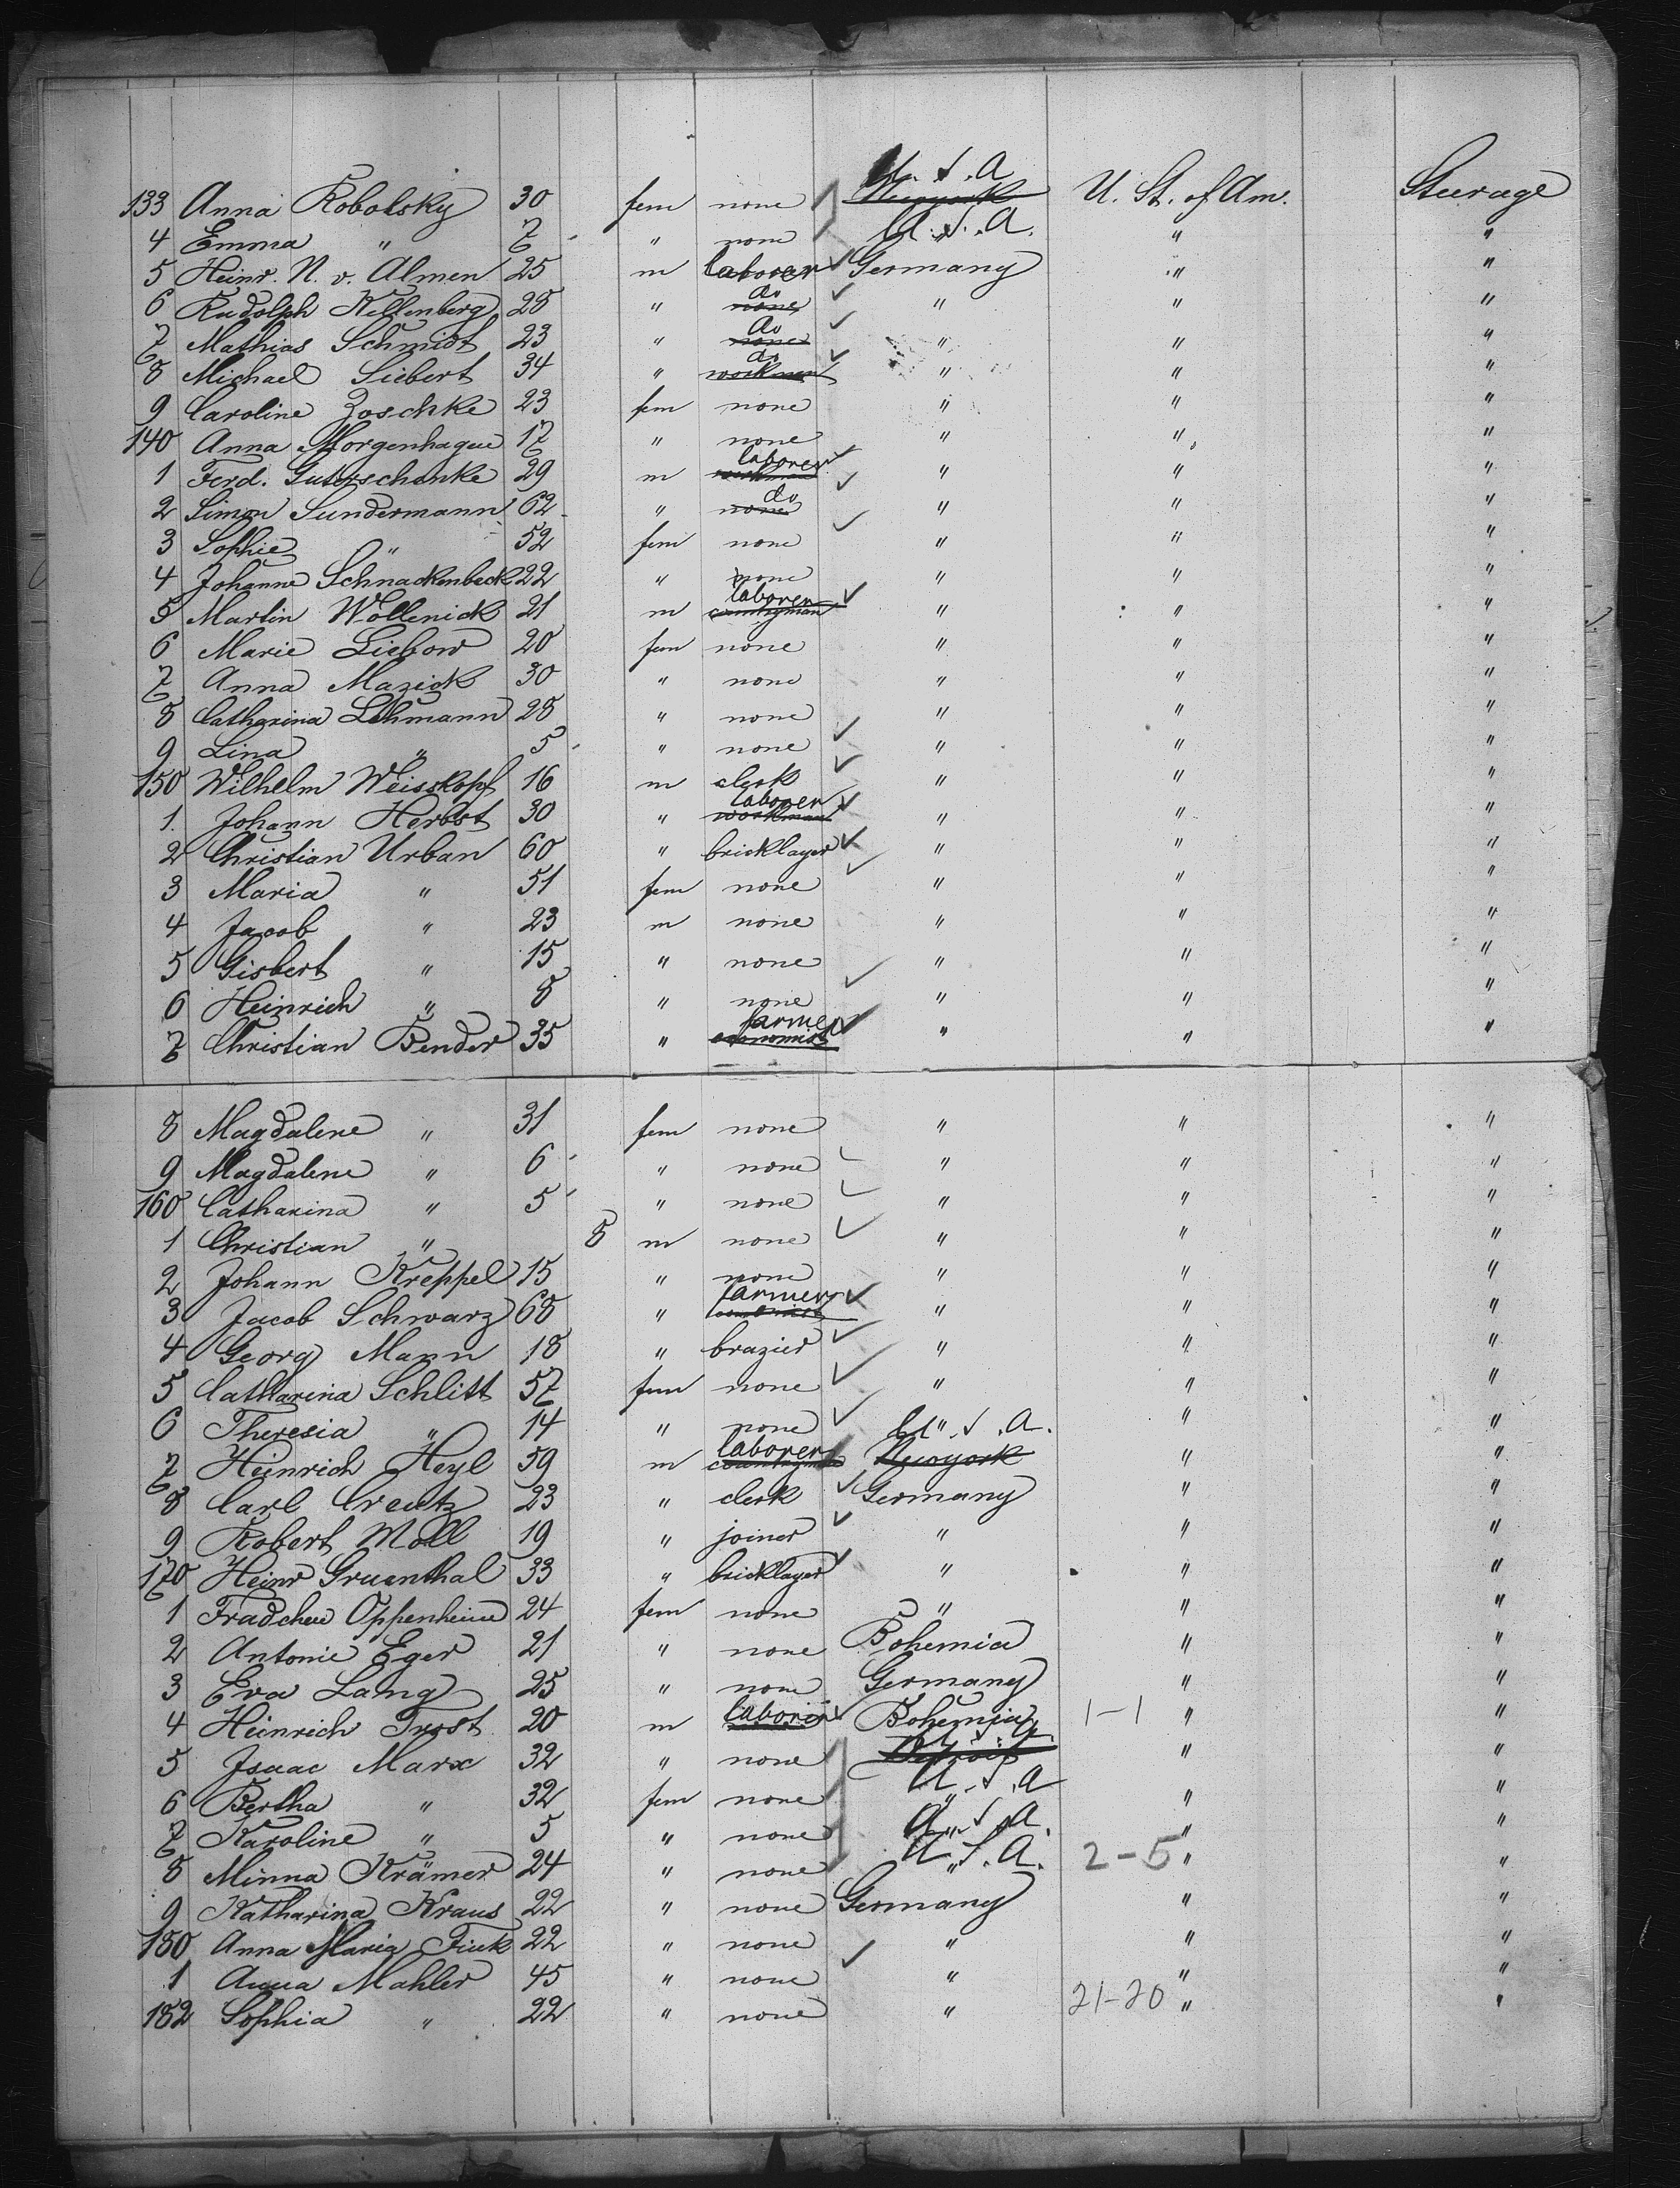 U. S. A
133 Anna Robolsky 30 fem none Newyork U. St. of Am. Steerage
4 Emma " 7 " none U. S. A. " "
5 Heinr. N. v. Almen 25 m laborer Germany " "
6 Rudolph Kellenberg 28 " none do " " "
7 Mathias Schmidt 23 " none do " " "
8 Michael Siebert 34 " workman do " " "
9 Caroline Zoschke 23 fem none " " "
140 Anna Morgenhague 17 " none " " "
1 Ferd. Guterschanke 29 m workman laborer " " "
2 Simon Sundermann 62 " none do " " "
3 Sophie " 52 fem none " " "
4 Johanne Schnackenbeck 22 " none " " "
5 Martin Wollenick 21 m countryman laborer " " "
6 Marie Liebow 20 fem none " " "
7 Anna Mazick 30 " none " " "
8 Catharina Lehmann 28 " none " " "
9 Lina " 5 " none " " "
150 Wilhelm Weisskopf 16 m clerk " " "
1 Johann Herbst 30 " workman laborer " " "
2 Christian Urban 60 " bricklayer " " "
3 Maria " 51 fem none " " "
4 Jacob " 23 m none " " "
5 Gisbert " 15 " none " " "
6 Heinrich " 8 " none " " "
7 Christian Bender 35 " economist farmer " " "
8 Magdalene " 31 fem none " " "
9 Magdalene " 6 " none " " "
160 Catharina " 5 " none " " "
1 Christian " 8 m none " " "
2 Johann Kreppel 15 " none " " "
3 Jacob Schwarz 68 " economist farmer " " "
4 Georg Mann 18 " brazier " " "
5 Catharina Schlitt 57 fem none " " "
6 Theresia " 14 " none " U. S. A. " "
7 Heinrich Heyl 59 m countryman laborer Newyork " "
8 Carl Creutz 23 " clerk Germany " "
9 Robert Moll 19 " joiner " " "
170 Heinr Gruenthal 33 " bricklayer " " "
1 Fradchen Oppenheim 24 fem none " " "
2 Antonie Eger 21 " none Bohemia " "
3 Eva Lang 25 " none Germany " "
4 Heinrich Trost 20 m laborer Bohemia 1-1 " "
5 Isaac Marx 32 " none Detroit " "
6 Bertha " 32 fem none " U. S. A " "
7 Karoline " 5 " none " U. S. A. " "
8 Minna Krämer 24 " none " U. S. A. 2-5 " "
9 Katharina Kraus 22 " none Germany " "
180 Anna Maria Fink 22 " none " " "
1 Anna Mahler 45 " none " " "
182 Sophia " 22 " none " 21-20 " "